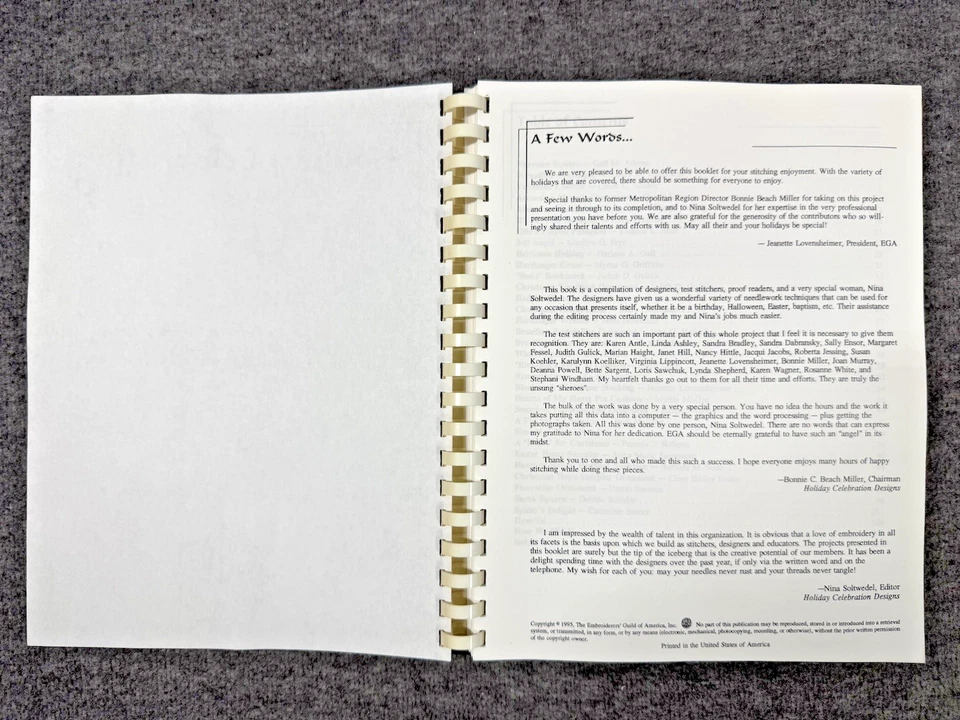 A Few Words...
We are very pleased to be able to offer this booklet for your stitching enjoyment. With the variety of
holidays that are covered, there should be something for everyone to enjoy.
Special thanks to former Metropolitan Region Director Bonnie Beach Miller for taking on this project
and seeing it through to its completion, and to Nina Soltwedel for her expertise in the very professional
presentation you have before you. We are also grateful for the generosity of the contributors who so will-
ingly shared their talents and efforts with us. May all their and your holidays be special!
— Jeanette Lovensheimer, President, EGA
This book is a compilation of designers, test stitchers, proof readers, and a very special woman, Nina
Soltwedel. The designers have given us a wonderful variety of needlework techniques that can be used for
any occasion that presents itself, whether it be a birthday, Halloween, Easter, baptism, etc. Their assistance
during the editing process certainly made my and Nina's jobs much easier.
The test stitchers are such an important part of this whole project that I feel it is necessary to give them
recognition. They are: Karen Antle, Linda Ashley, Sandra Bradley, Sandra Dabransky, Sally Ensor, Margaret
Fessel, Judith Gulick, Marian Haight, Janet Hill, Nancy Hittle, Jacqui Jacobs, Roberta Jessing, Susan
Koehler, Karalynn Koelliker, Virginia Lippincott, Jeanette Lovensheimer, Bonnie Miller, Joan Murray,
Deanna Powell, Bette Sargent, Loris Sawchuk, Lynda Shepherd, Karen Wagner, Rosanne White, and
Stephani Windham. My heartfelt thanks go out to them for all their time and efforts. They are truly the
unsung "sheroes".
The bulk of the work was done by a very special person. You have no idea the hours and the work it
takes putting all this data into a computer — the graphics and the word processing — plus getting the
photographs taken. All this was done by one person, Nina Soltwedel. There are no words that can express
my gratitude to Nina for her dedication. EGA should be eternally grateful to have such an "angel" in its
midst.
Thank you to one and all who made this such a success. I hope everyone enjoys many hours of happy
stitching while doing these pieces.
—Bonnie C. Beach Miller, Chairman
Holiday Celebration Designs
I am impressed by the wealth of talent in this organization. It is obvious that a love of embroidery in all
its facets is the basis upon which we build as stitchers, designers and educators. The projects presented in
this booklet are surely but the tip of the iceberg that is the creative potential of our members. It has been a
delight spending time with the designers over the past year, if only via the written word and on the
telephone. My wish for each of you: may your needles never rust and your threads never tangle!
—Nina Soltwedel, Editor
Holiday Celebration Designs
Copyright © 1995, The Embroiderers' Guild of America, Inc. No part of this publication may be reproduced, stored in or introduced into a retrieval
system, or transmitted, in any form, or by any means (electronic, mechanical, photocopying, recording, or otherwise), without the prior written permission
of the copyright owner.
Printed in the United States of America